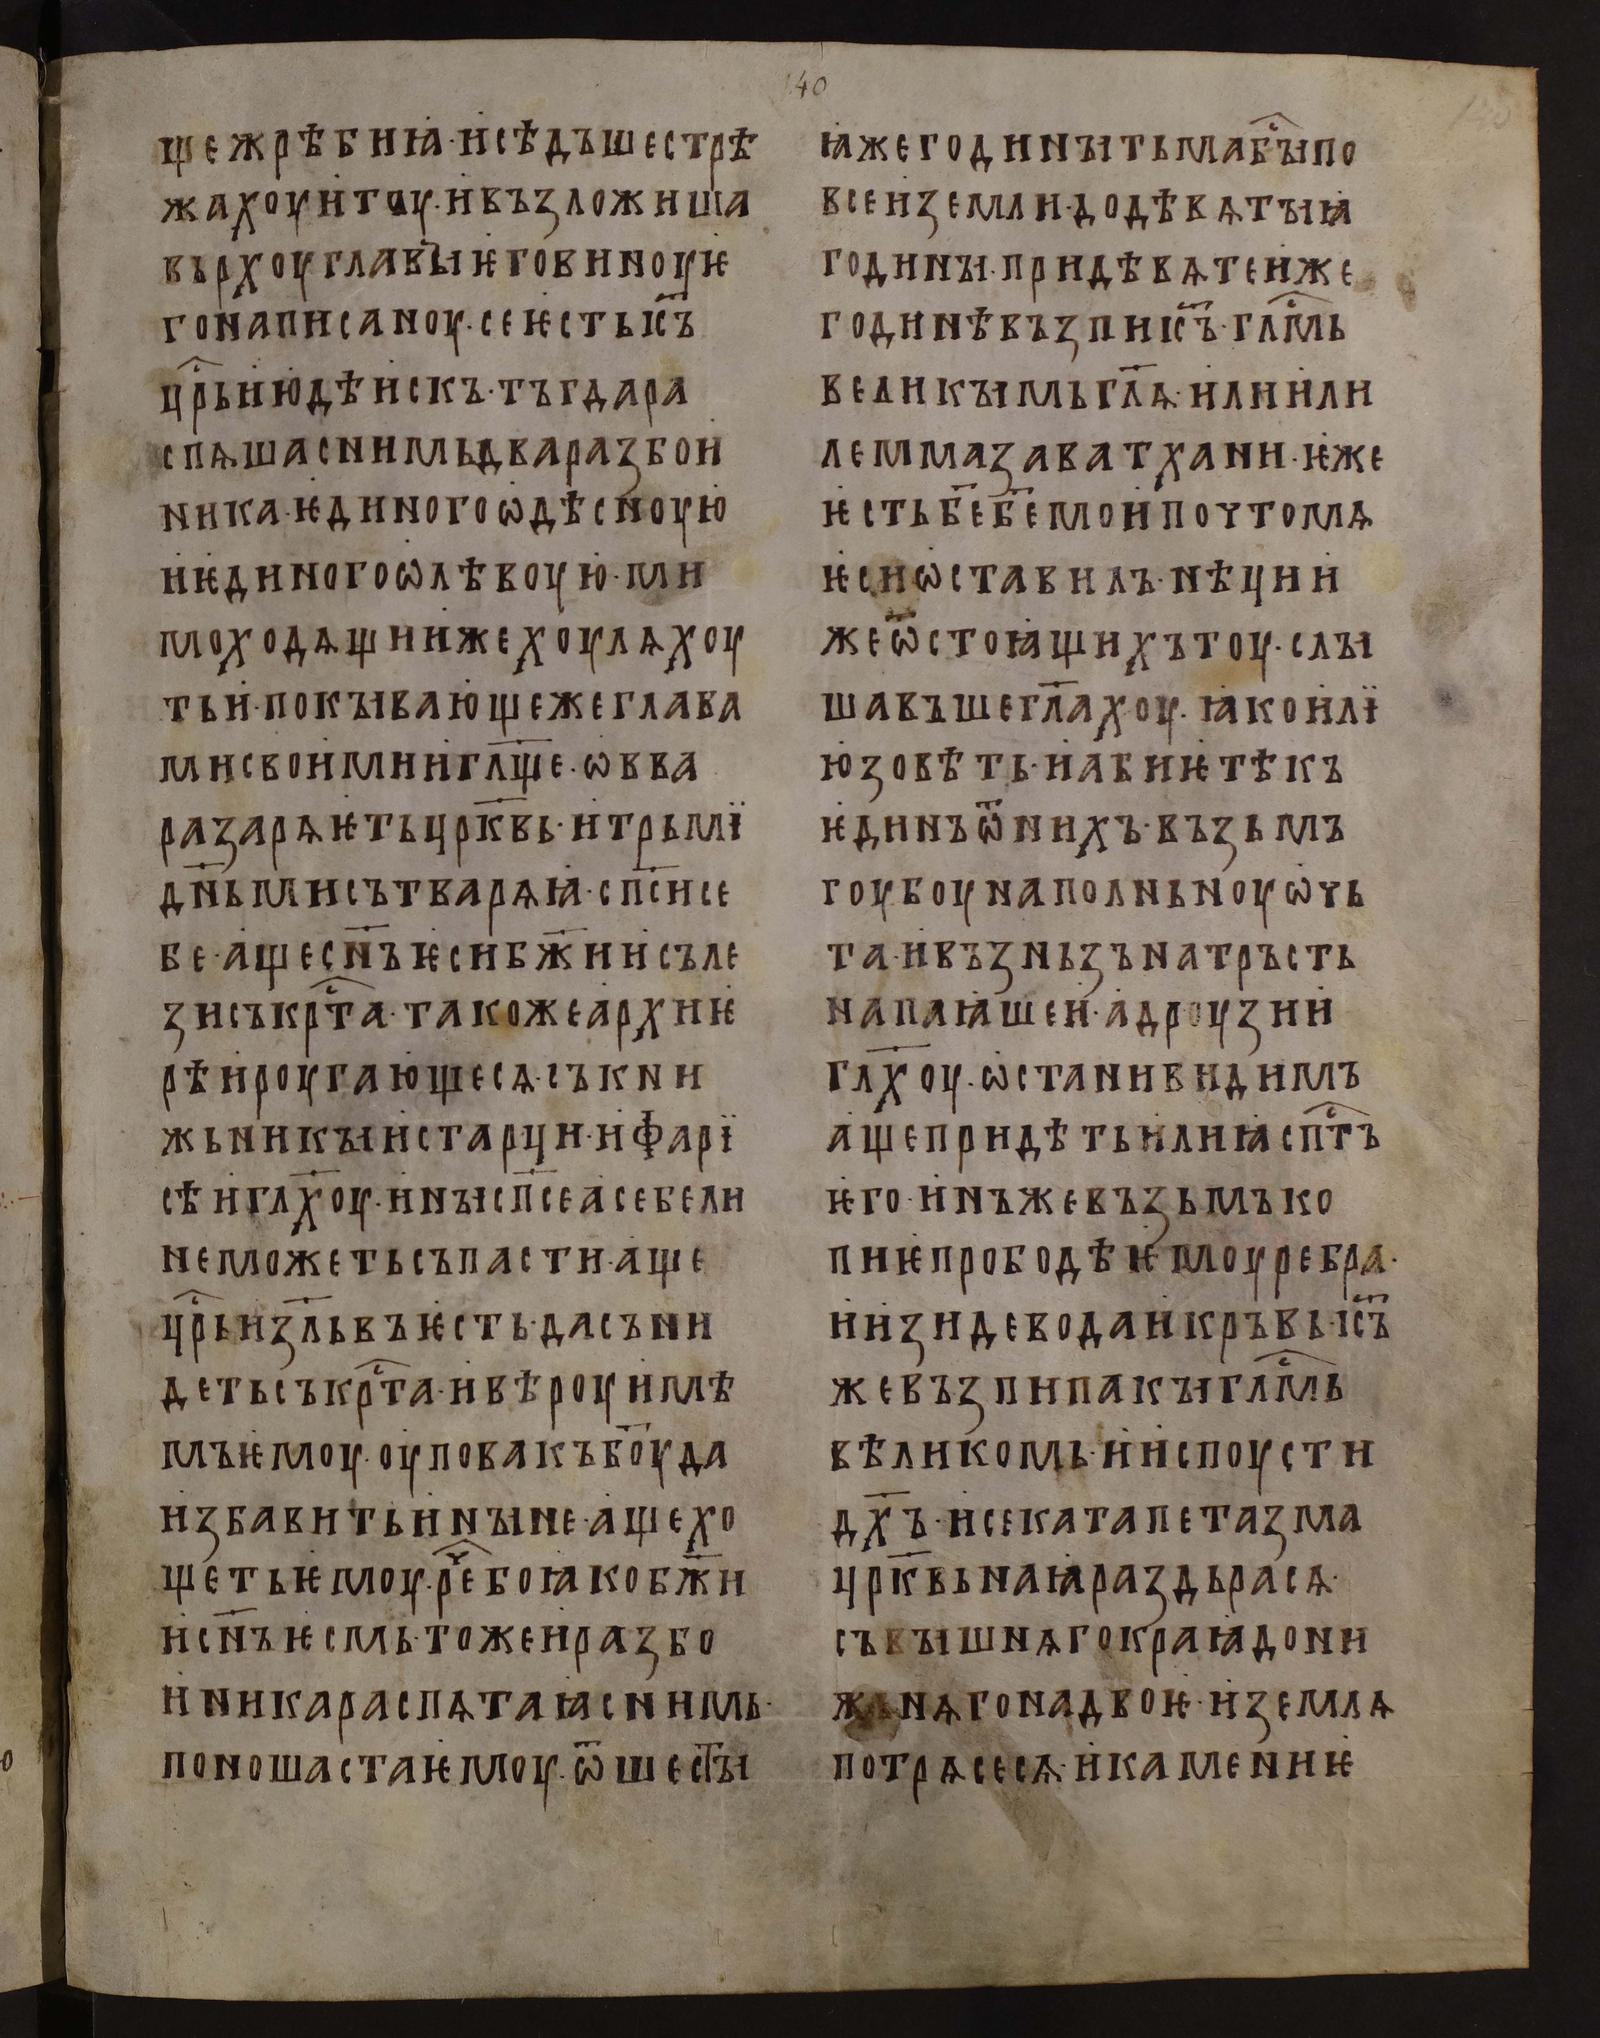 140
щежрѣбиꙗ·исѣдъшестрѣ
жахоуитоу·ивъзложиша
вьрхоуглавыѥговиноуѥ
гонаписаноу·сеѥстьіс҃ъ
цр҃ьиюдѣискъ·тъгдара
спѧшаснимьдваразбои
ника·ѥдиногоѡдѣсноую
иѥдиногоѡлѣвоую·ми
моходѧщиижехоулѧхоу
тьи·покывающежеглава
мисвоимииигл҃ще·ѡвва
разарѧѥтьцр҃квь·итрьмї
дн҃ьмисътварѧꙗ·сп҃сисе
бе·ащесн҃ъѥсибж҃иисъле
зисъкрⷭ҇та·такожеархиѥ
рѣироугающесѧ·съкни
жьникыистарци·ифарї
сѣигл҃хоу·инысп҃сеасебели
неможетьсъпасти·аще
цр҃ьиз҃львъѥсть·дасъни
детьсъкрⷭ҇та·ивѣроуимѣ
мъѥмоу·оуповакъбо҃уда
избавитьиныне·ащехо
щетьѥмоу·реⷱ҇боꙗкобж҃и
исн҃ъѥсмь·тожеиразбо
иникараспѧтаꙗснимь·
поношастаѥмоу·ѿшесты
ꙗжегодинытьмабⷭ҇ыпо
всеиземли·додѣвѧтыꙗ
годины·придѣвѧтеиже
годинѣвъзпиіс҃ъ·глⷭ҇мь
великымьгл҃ѧ·илиили
леммазаватхани·ѥже
ѥстьбе҃бе҃моипоутомѧ
ѥсиѡставилъ·нѣции
жеѿстоꙗщихътоу·слы
шавъшегл҃ахоу·ꙗкоилї
юзовѣть·иабиѥтѣкъ
ѥдинъѿнихъ·възьмъ
гоубоунаполньноуѡць
та·ивъзньзънатръсть
напаꙗшеи·адроузии
гл҃хоу·ѡстанивидимъ
ащепридѣтьилиꙗспⷭ҇тъ
ѥго·инъжевъзьмъко
пиѥпрободѣѥмоуребра·
иизидеводаикръвь·іс҃ъ
жевъзпипакыглⷭ҇мь
вѣликомь·ииспоусти
дх҃ъ·исекатапетазма
цр҃квьнаꙗраздьрасѧ·
съвышнѧгокраꙗдони
жьнѧгонадвоѥ·иземлѧ
потрѧсесѧ·икамениѥ